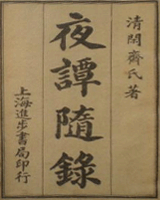 清閑齋氏著
夜譚隨錄
上海進步書局印行